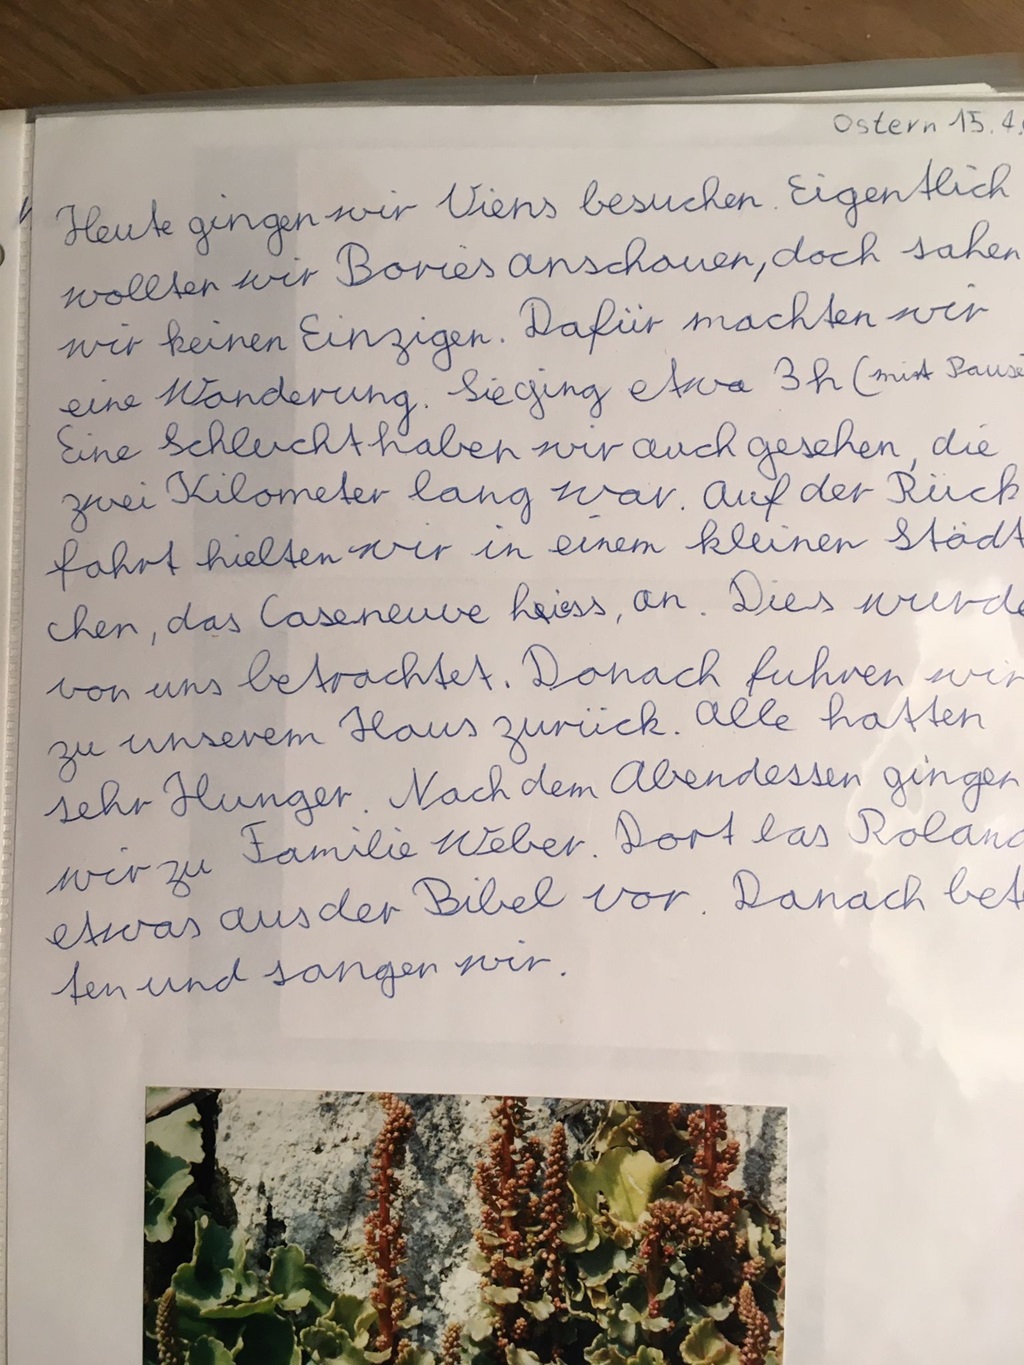 Ostern 15.4.
Heute gingen wir Viens besuchen. Eigentlich
wollten wir Bories anschauen, doch sahen
wir keinen Einzigen. Dafür machten wir
eine Wanderung. Sie ging etwa 3h (mit Pause
Eine Schlucht haben wir auch gesehen, die
zwei Kilometer lang war. Auf der Rück
fahrt hielten wir in einem kleinen Städt
chen, das Caseneuve heiss, an. Dies wurde
von uns betrachtet. Danach fuhren wir
zu unserem Haus zurück. Alle hatten
sehr Hunger. Nach dem Abendessen gingen
wir zu Familie Weber. Dort las Roland
etwas aus der Bibel vor. Danach bet
ten und sangen wir.